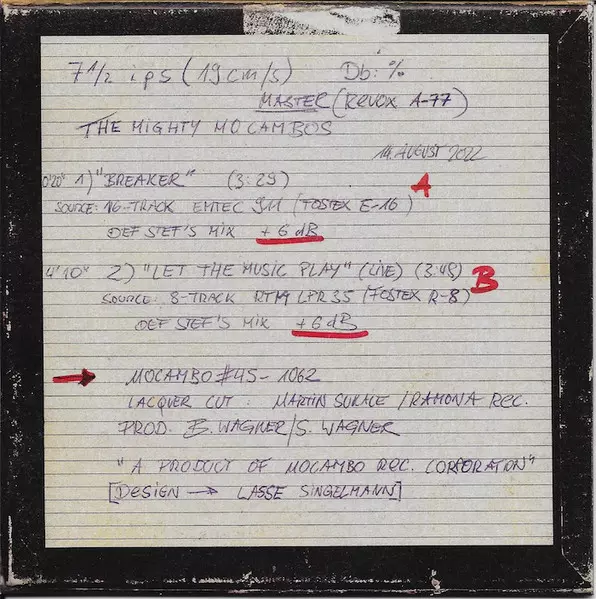 7 1/2 ips (19cm/s) Db: %
MASTER (REVOX A-77)
THE MIGHTY MOCAMBOS
14. AUGUST 2022
0'20" 1) "BREAKER" (3:29) A
SOURCE: 16-TRACK EMTEC 911 (FOSTEX E-16)
DEF STEF'S MIX +6 dB
4'10" 2) "LET THE MUSIC PLAY" (LIVE) (3:49) B
SOURCE: 8-TRACK RTM LPR35 (FOSTEX R-8)
DEF STEF'S MIX +6 dB
→ MOCAMBO #45-1062
LACQUER CUT: MARTIN /RAMONA REC.
PROD. B. WAGNER/S. WAGNER
"A PRODUCT OF MOCAMBO REC. CORPORATION"
[DESIGN → LASSE SINGELMANN]